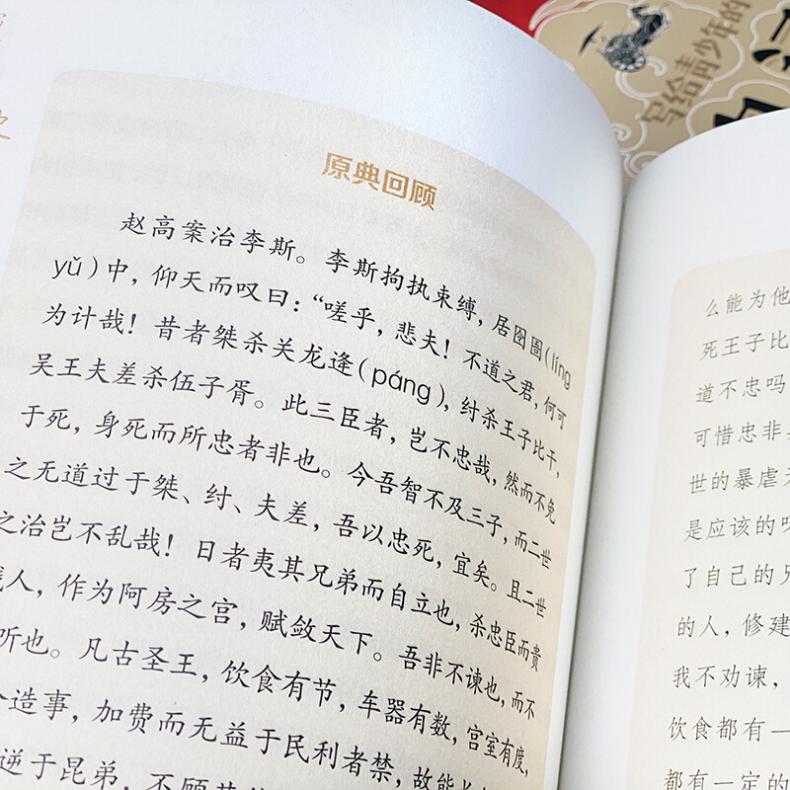 写给青少年的
史
原典回顾
赵高案治李斯。李斯拘执束缚，居囹圄(líng
yǔ)中，仰天而叹曰：“嗟乎，悲夫！不道之君，何可
为计哉！昔者桀杀关龙逄(páng)，纣杀王子比干，
吴王夫差杀伍子胥。此三臣者，岂不忠哉，然而不免
于死，身死而所忠者非也。今吾智不及三子，而二世
之无道过于桀、纣、夫差，吾以忠死，宜矣。且二世
之治岂不乱哉！日者夷其兄弟而自立也，杀忠臣而贵
贱人，作为阿房之宫，赋敛天下。吾非不谏也，而不
听也。凡古圣王，饮食有节，车器有数，宫室有度，
造事，加费而无益于民利者禁，故能长
逆于昆弟，不顾
么能为他
死王子比
道不忠吗
可惜忠非
世的暴虐
是应该的
了自己的兄
的人，修建
我不劝谏，
饮食都有一
都有一定的